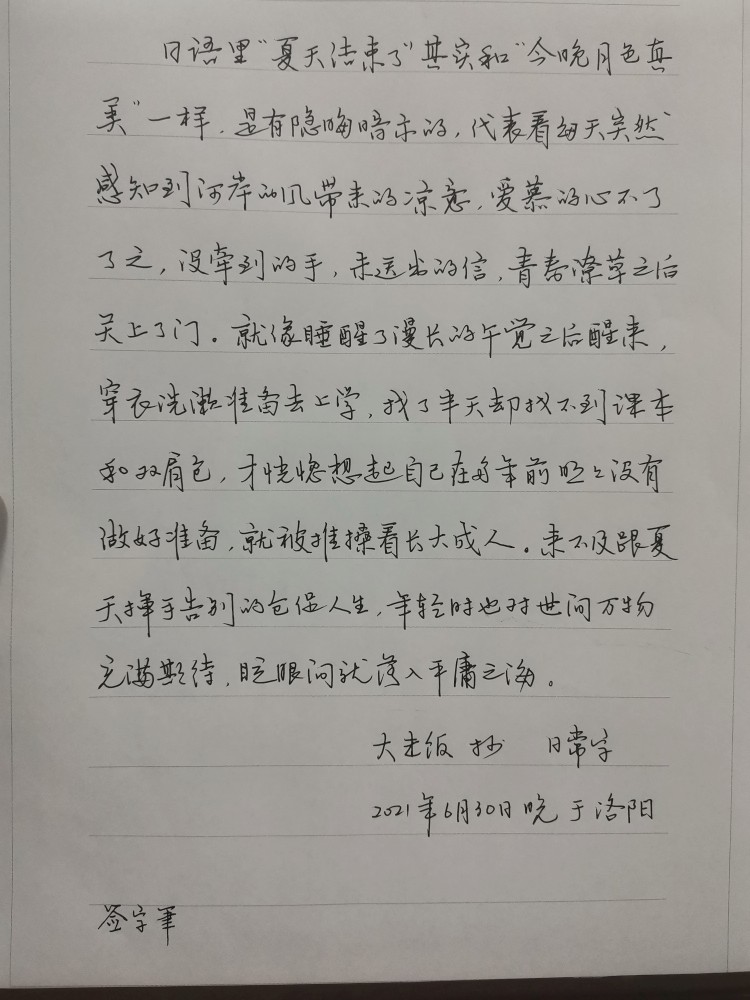 日语里“夏天结束了”其实和“今晚月色真
美”一样，是有隐晦暗示的，代表着每天突然
感知到河岸的风带来的凉意，爱慕的心不了
了之，没牵到的手，未送出的信，青春潦草之后
关上了门。就像睡醒了漫长的午觉之后醒来，
穿衣洗漱准备去上学，找了半天却找不到课本
和双肩包，才恍惚想起自己在多年前晚上没有
做好准备，就被推搡着长大成人。来不及跟夏
天挥手告别的仓促人生，年轻时也对世间万物
充满期待，眨眼间就落入平庸之海。
大 抄 日常字
2021年6月30日晚于洛阳
签字笔